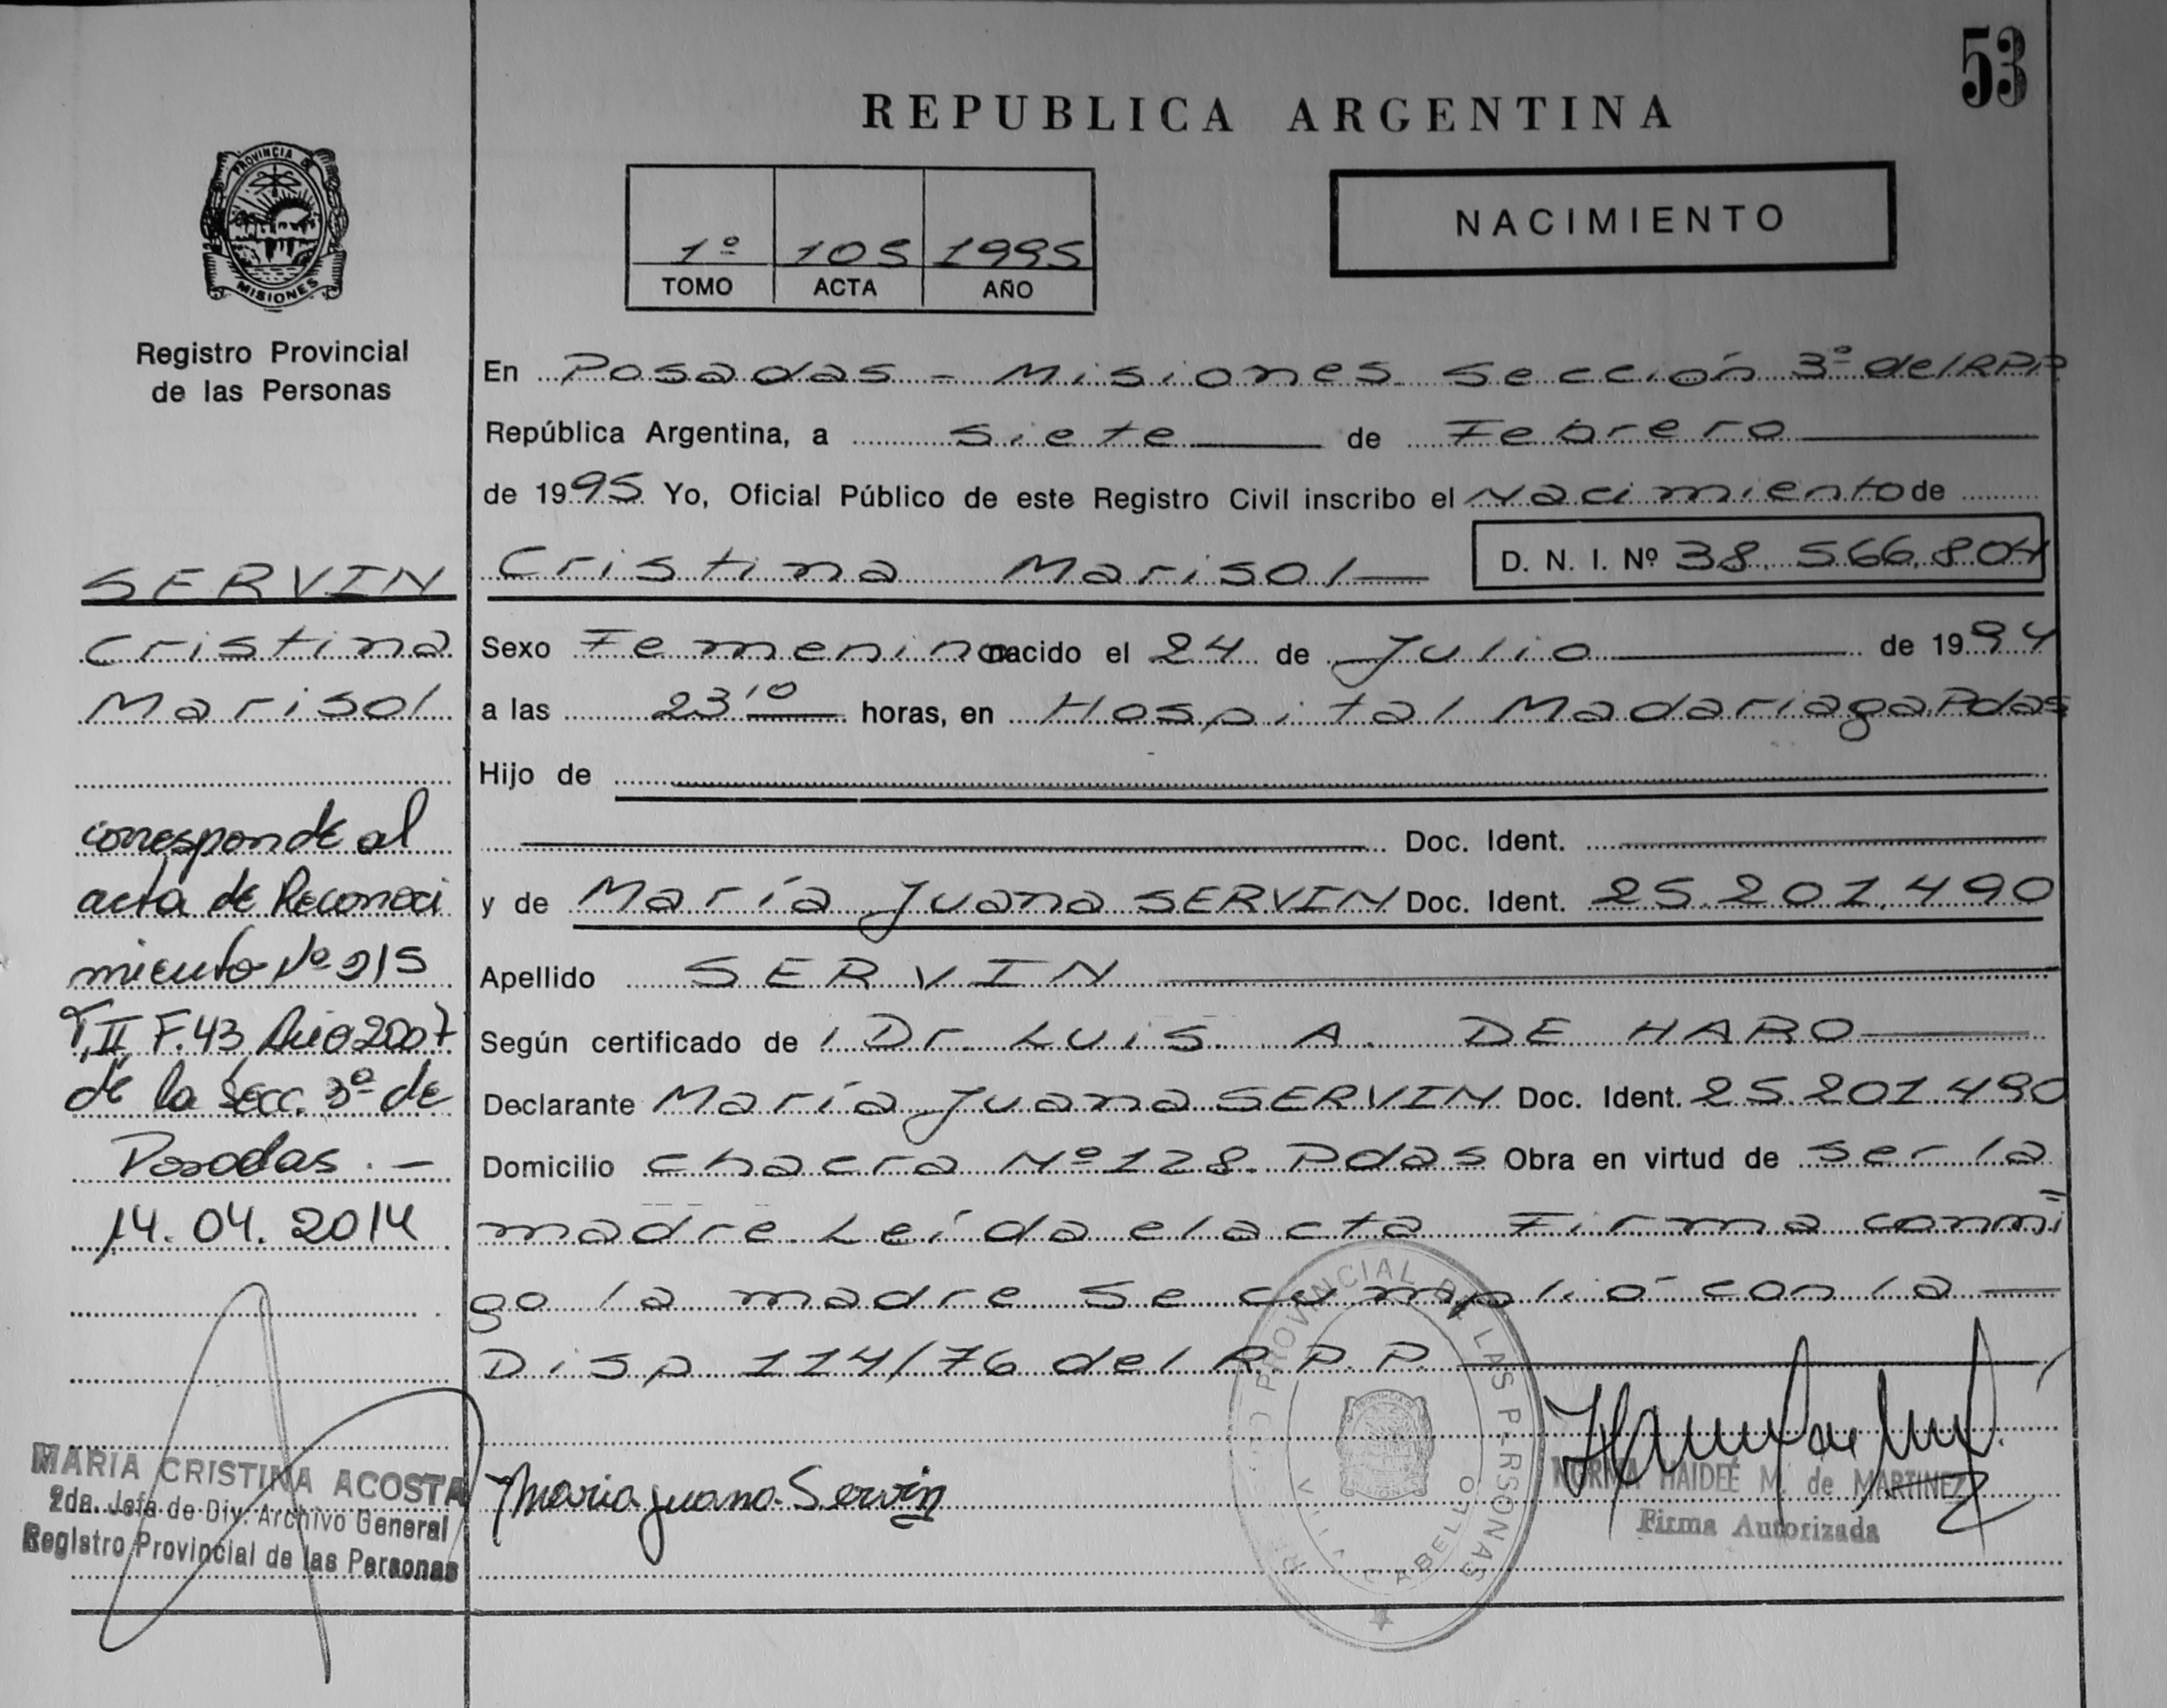 53
REPUBLICA ARGENTINA
PROVINCIA DE
MISIONES
Registro Provincial
de las Personas
1º 105 1995
TOMO ACTA AÑO
NACIMIENTO
En Posadas - Misiones Sección 3º del RPP
República Argentina, a siete de Febrero
de 1995 Yo, Oficial Público de este Registro Civil inscribo el Nacimiento de
Cristina Marisol D. N. I. Nº 38.566.804
Sexo Femenino nacido el 24 de Julio de 1994
a las 23 10 horas, en Hospital Madariaga Pdas
Hijo de
Doc. Ident.
y de María Juana SERVIN Doc. Ident. 25.201.490
Apellido SERVIN
Según certificado de l Dr. Luis A. DE HARO
Declarante María Juana SERVIN Doc. Ident. 25.201.490
Domicilio chacra Nº 128. Pdas Obra en virtud de ser la
madre. Leída el acta Firma conmi=
go la madre se cumplió con la
Disp 114/76 del R.P.P.
SERVIN
Cristina
Marisol
corresponde al
acta de Reconoci
miento Nº 215
T, II F. 43, Año 2007
de la Secc. 3º de
Posadas. -
14.04.2014
MARIA CRISTINA ACOSTA
2da. Jefa de Div. Archivo General
Registro Provincial de las Personas
Maria juana Servin
PROVINCIAL DE LAS P-RSONAS
CABELLO
NORMA HAIDEE M. de MARTINEZ
Firma Autorizada